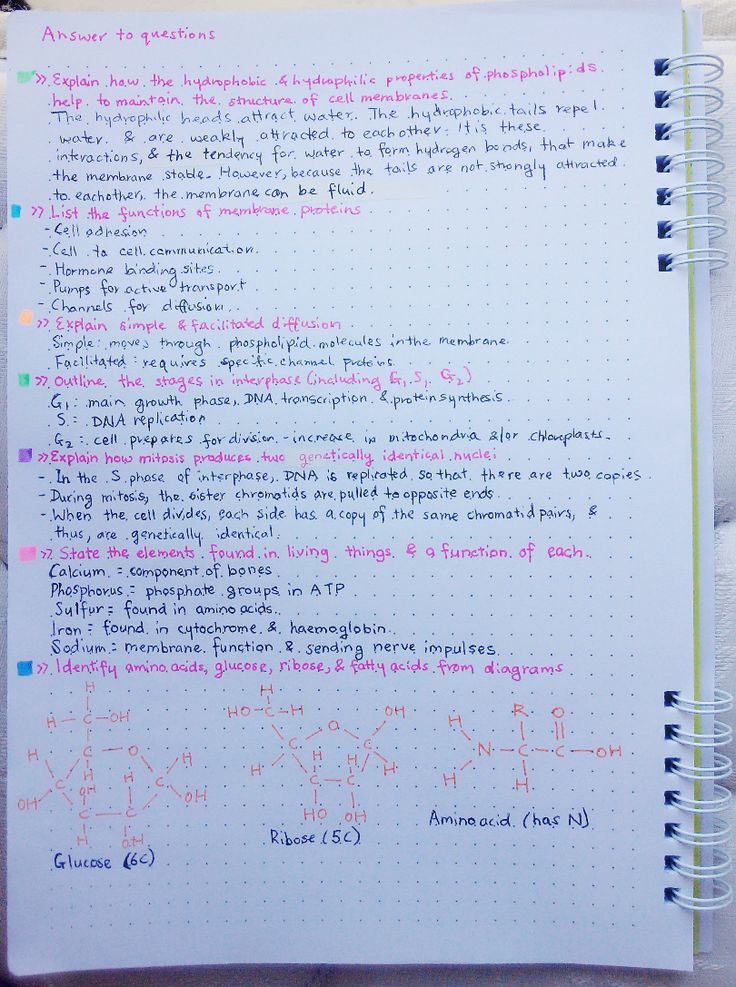 Answer to questions
>> Explain how the hydrophobic & hydrophilic properties of phospholipids
help to maintain the structure of cell membranes.
The hydrophilic heads attract water. The hydrophobic tails repel
water & are weakly attracted to eachother. It is these
interactions, & the tendency for water to form hydrogen bonds, that make
the membrane stable. However, because the tails are not strongly attracted
to eachother, the membrane can be fluid.
>> List the functions of membrane proteins
- Cell adhesion
- Cell to cell communication
- Hormone binding sites
- Pumps for active transport
- Channels for diffusion
>> Explain simple & facilitated diffusion
Simple: moves through phospholipid molecules in the membrane
Facilitated: requires specific channel proteins
>> Outline the stages in interphase (including G1, S, G2)
G1: main growth phase, DNA transcription & protein synthesis
S: DNA replication
G2: cell prepares for division - increase in mitochondria &/or chloroplasts
>> Explain how mitosis produces two genetically identical nuclei
- In the S phase of interphase, DNA is replicated so that there are two copies
- During mitosis, the sister chromatids are pulled to opposite ends
- When the cell divides, each side has a copy of the same chromatid pairs, &
thus, are genetically identical
>> State the elements found in living things & a function of each
Calcium = component of bones
Phosphorus = phosphate groups in ATP
Sulfur = found in amino acids
Iron = found in cytochrome & haemoglobin
Sodium = membrane function & sending nerve impulses
>> Identify amino acids, glucose, ribose, & fatty acids from diagrams
H
H-C-OH
H C O H
C H OH H C
OH C C OH
H OH
Glucose (6C)
H
HO-C-H O OH
C H H C
H C C H
HO OH
Ribose (5C)
H R O
N-C-C-OH
H H
Amino acid (has N)